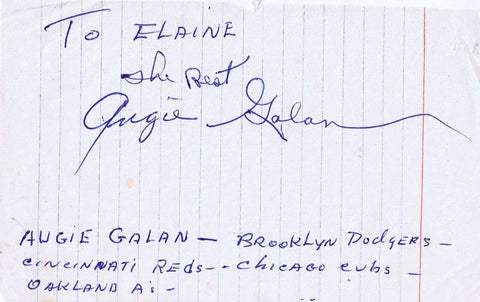 To ELAINE
The Best
Augie Galan
AUGIE GALAN — BROOKLYN DODGERS —
CINCINNATI REDS - - CHICAGO CUBS —
OAKLAND A's —